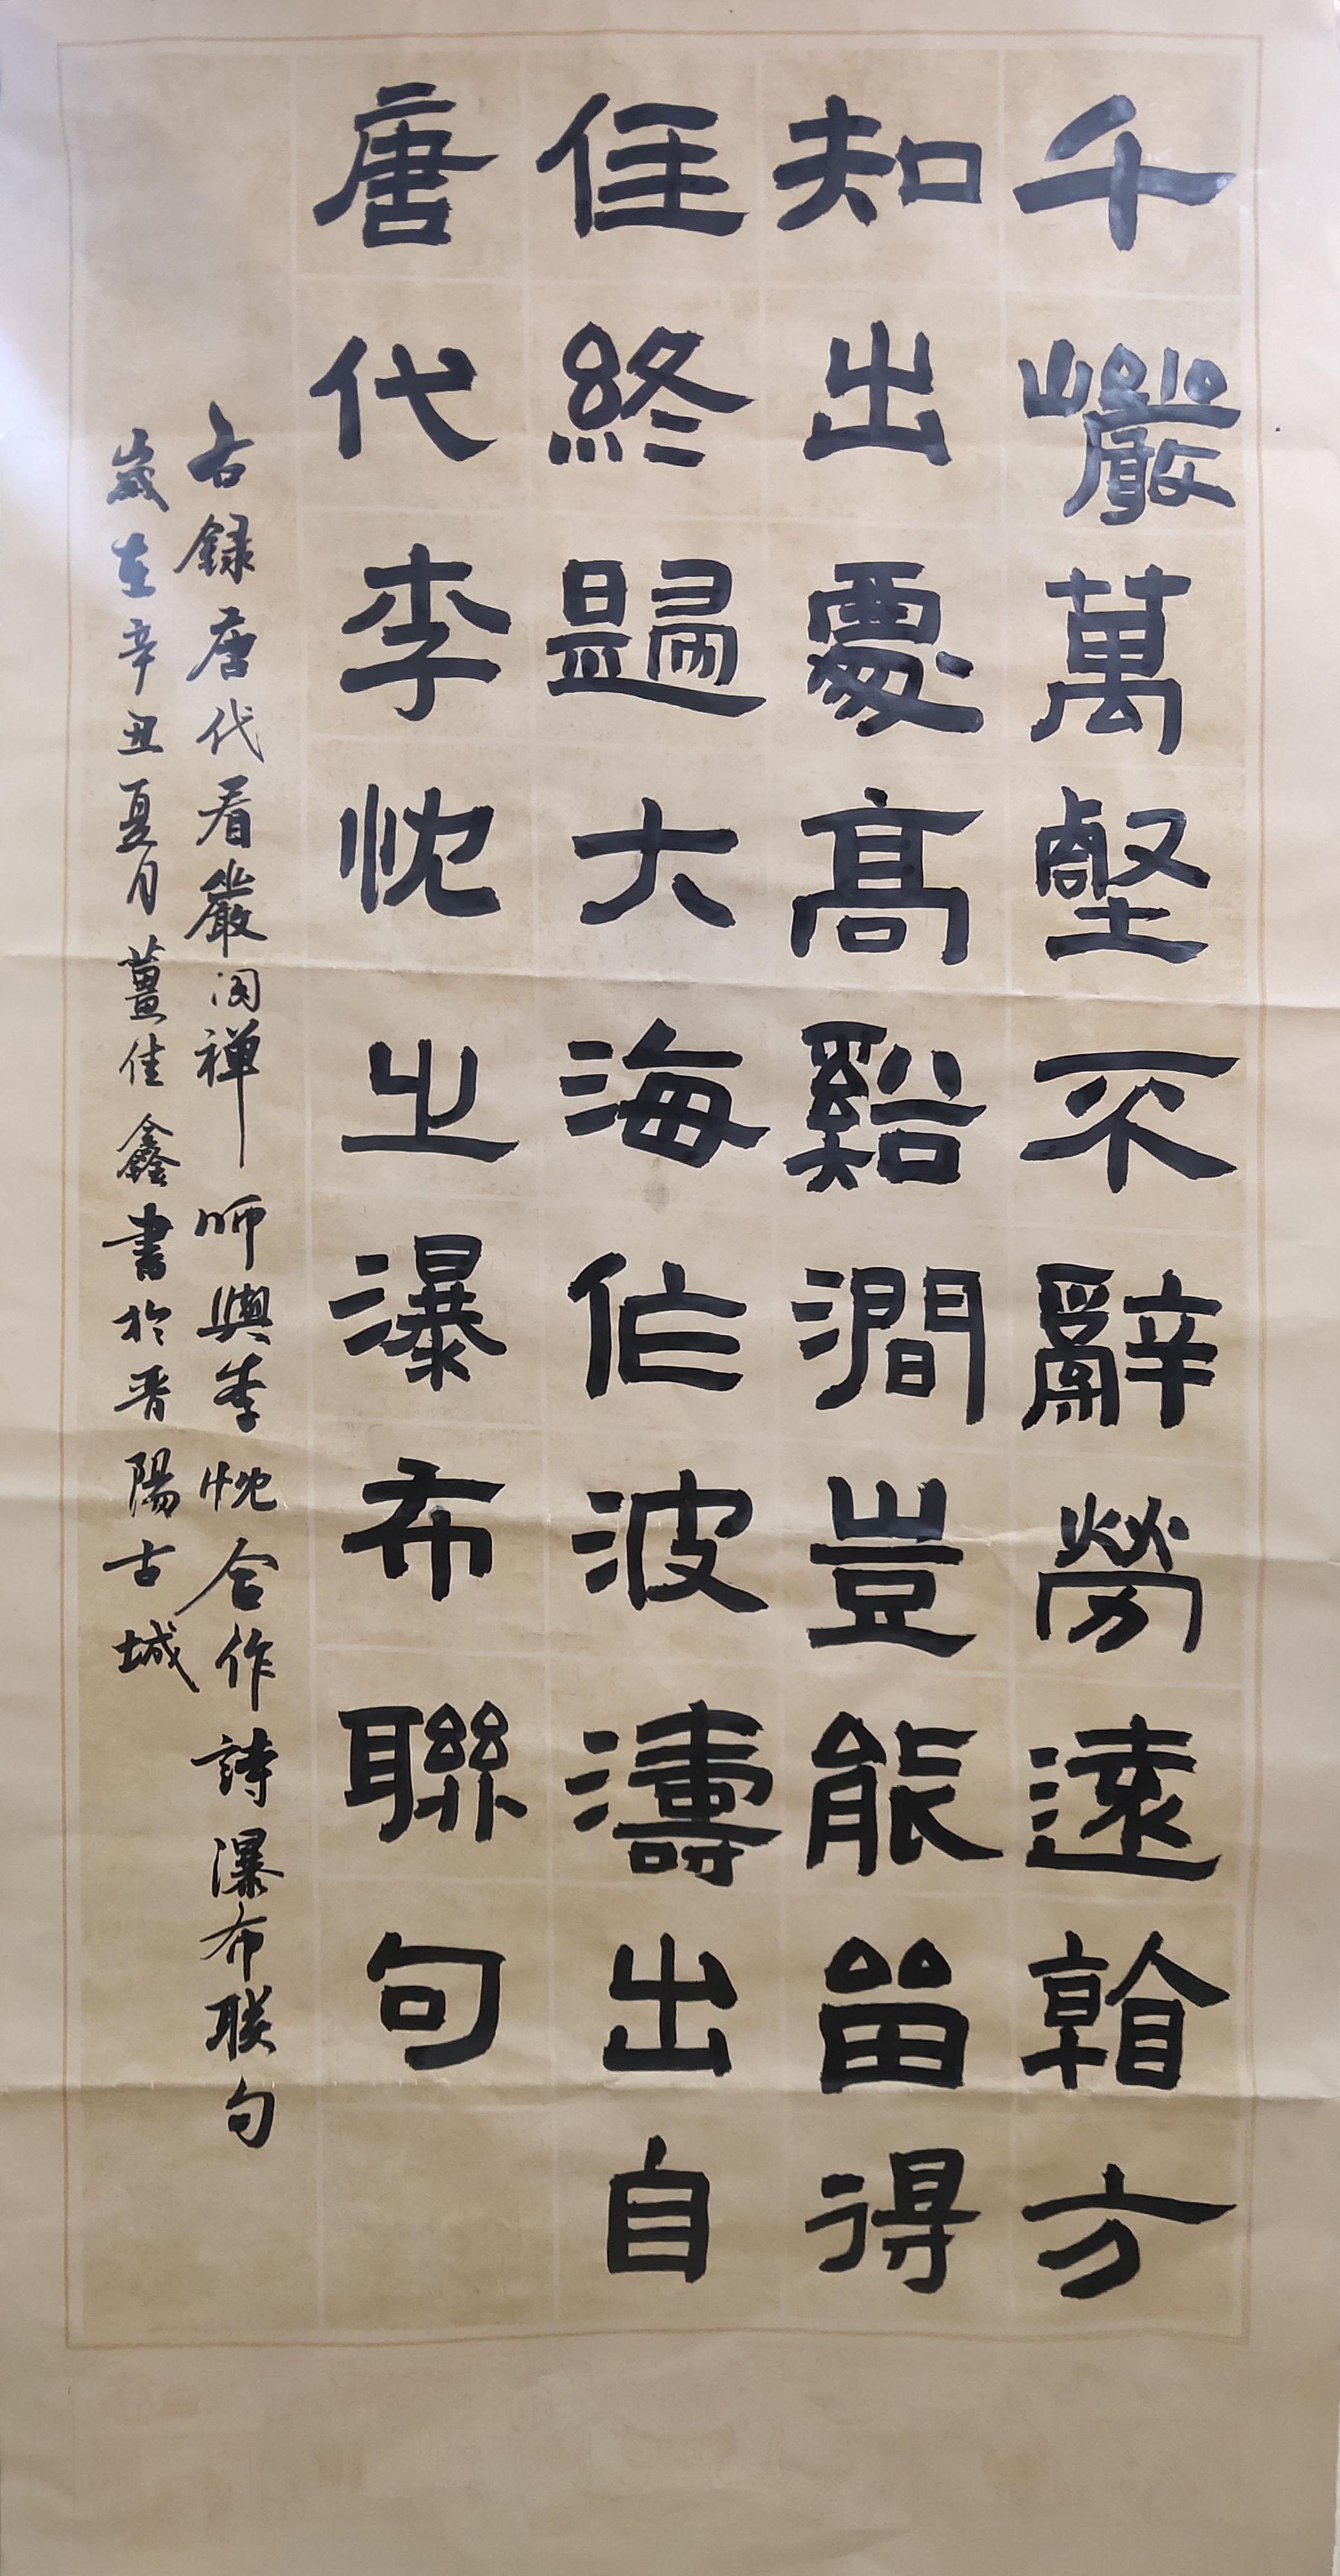 千巖萬壑不辭勞遠看方
知出處高谿澗豈能留得
住終歸大海作波濤出自
唐代李忱之瀑布聯句
右録唐代看巖闲禅師與李忱合作詩瀑布联句
歲在辛丑夏月薑佳鑫書於晋陽古城